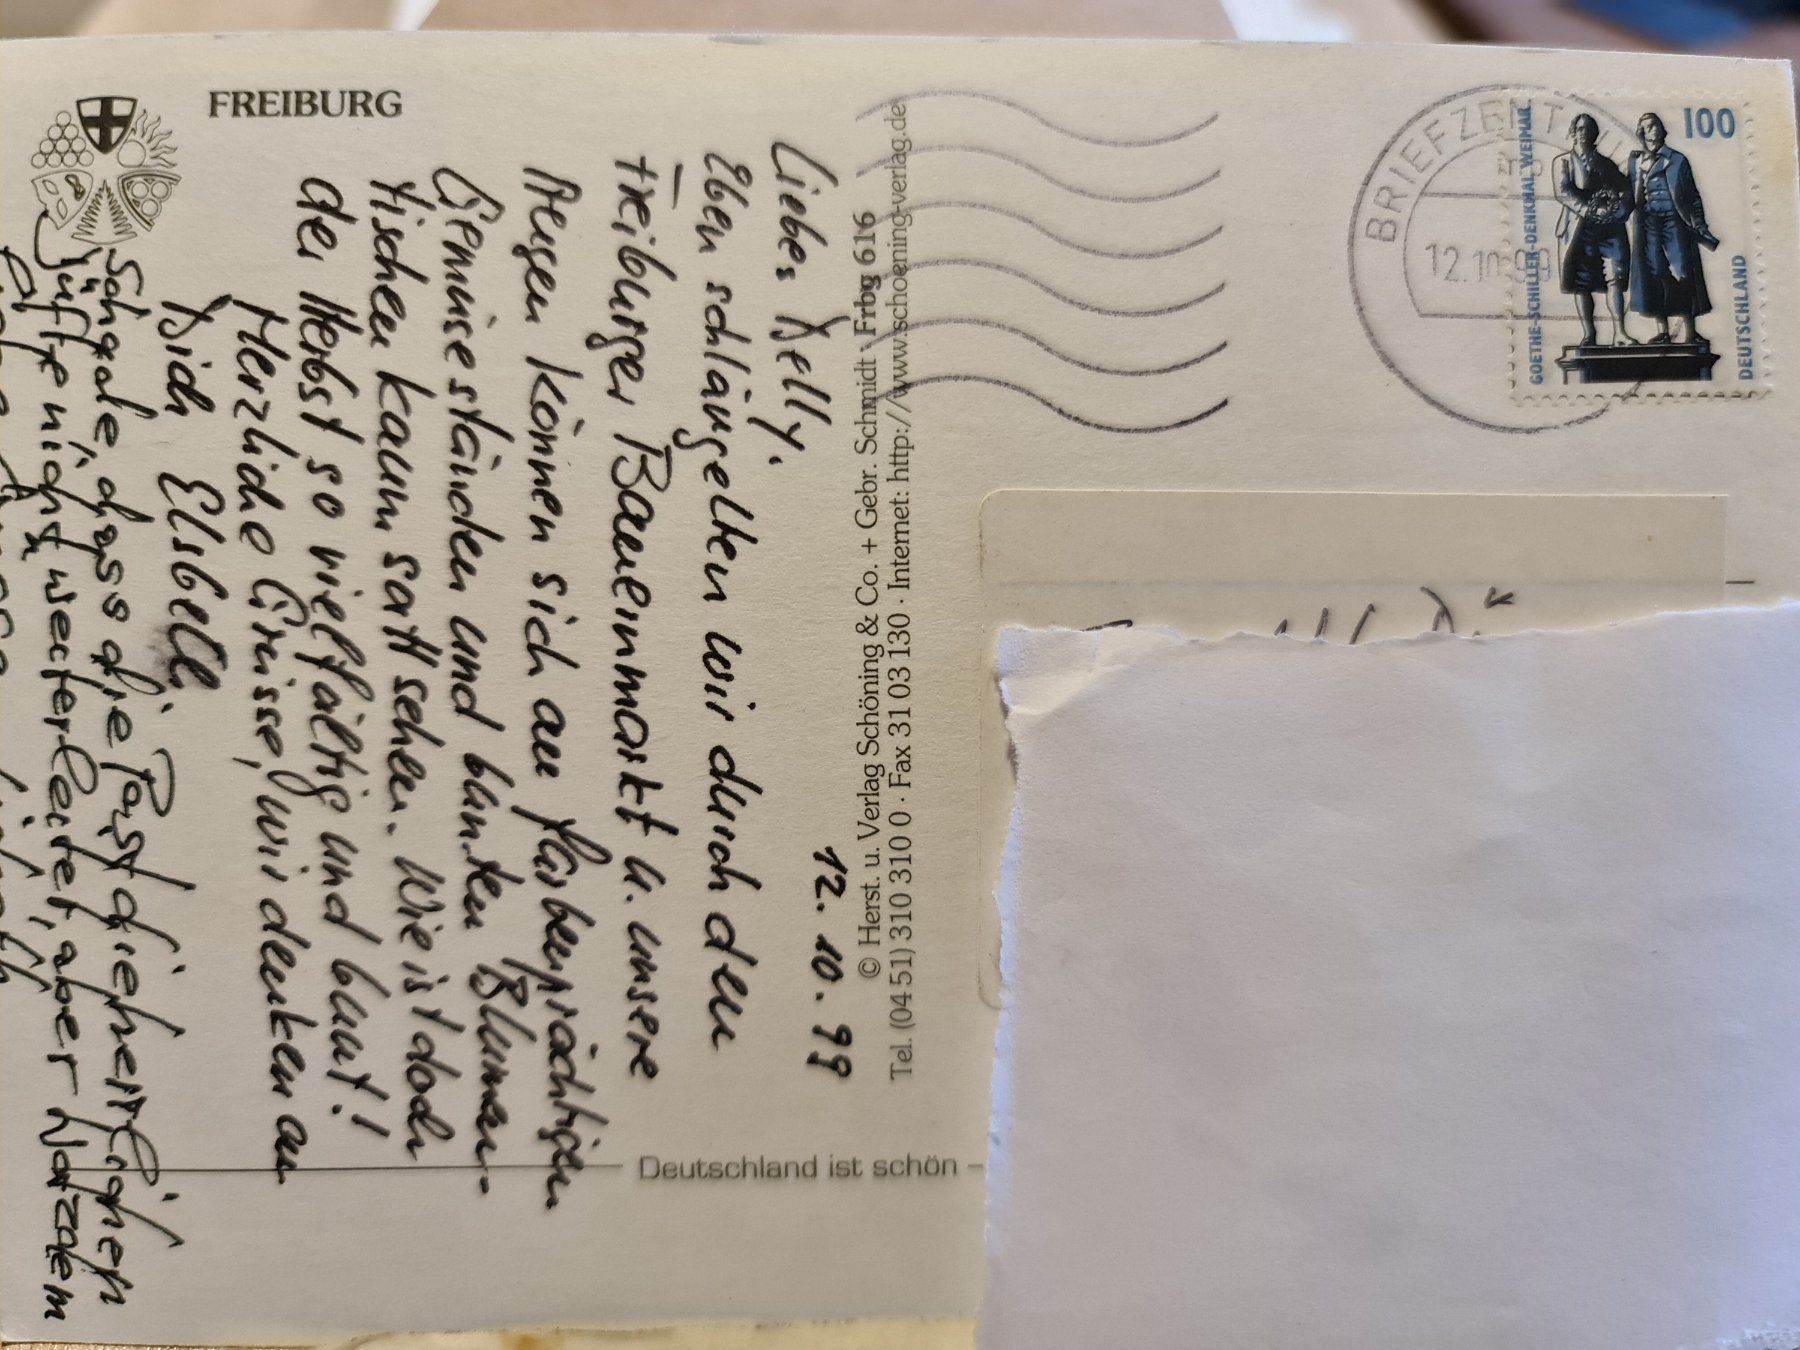 FREIBURG
12. 10. 99
Lieber Kelly.
Eben schlängelten wir durch den
Freiburger Bauernmarkt u. unsere
Augen können sich an farbenprächtigen
Gemüseständen und bunten Blumen-
tischen kaum satt sehen. Wie ist doch
der Herbst so vielfältig und bunt!
Herzliche Grüsse, wir denken an
Dich Elsbeth
Schade, dass die Post die herrlichen
Düfte nicht weiterleitet, aber trotzdem
© Herst. u. Verlag Schöning & Co. + Gebr. Schmidt · Frbg 616
Tel. (04 51) 310 310 0 · Fax 31 03 130 · Internet: http://www.schoening-verlag.de
Deutschland ist schön –
BRIEFZENTRUM
12.10.99
100
GOETHE-SCHILLER-DENKMAL WEIMAR
DEUTSCHLAND